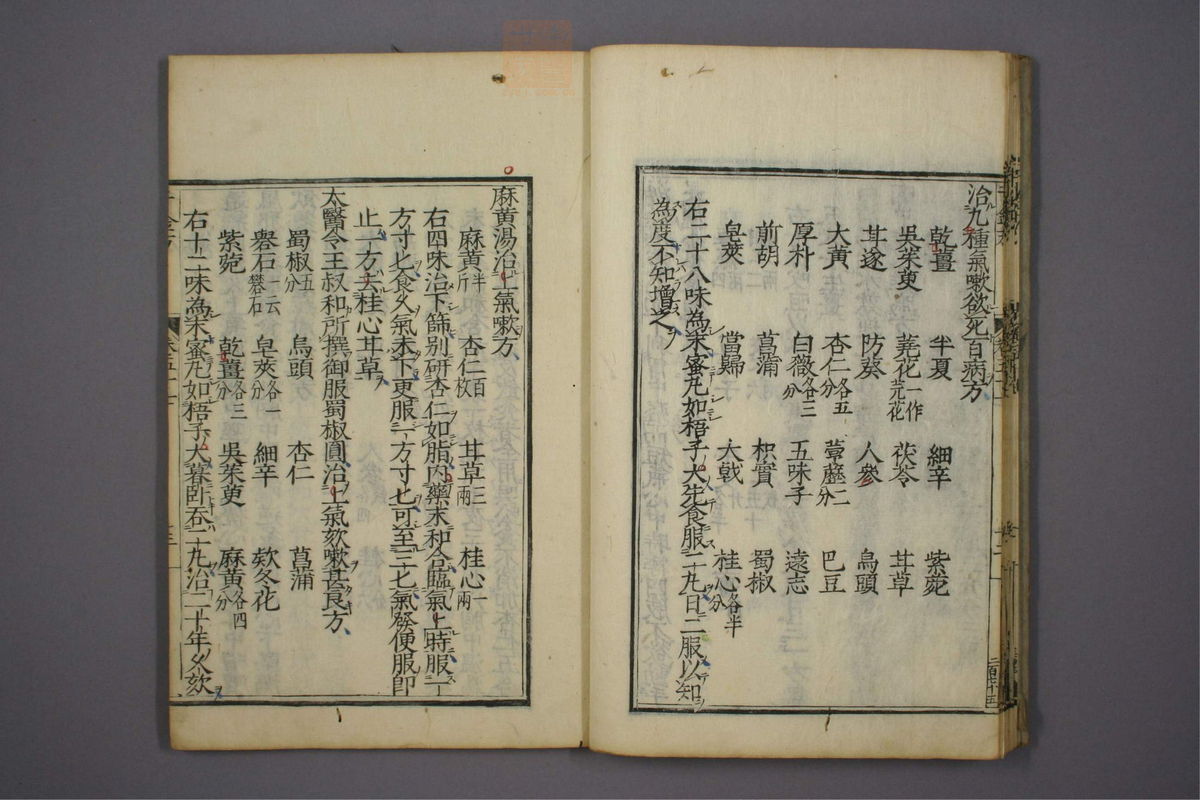 治九種氣嗽欲死百病方
乾薑　半夏　細辛　紫菀
吳茱萸　蕘花一作芫花　茯苓　甘草
甘遂　防葵　人參　烏頭
大黃　杏仁各五分　葶藶二分　巴豆
厚朴　白薇各三分　五味子　遠志
前胡　菖蒲　枳實　蜀椒
皂莢　當歸　大戟　桂心各半分
右二十八味為末蜜丸如梧子大先食服二丸日二服以知
為度不知增之
麻黃湯治上氣嗽方
麻黃半斤　杏仁百枚　甘草三兩　桂心一兩
右四味治下篩別研杏仁如脂內藥末和合臨氣上時服一
方寸匕食久氣未下更服一方寸匕可至三匕氣發便服即
止一方去桂心甘草
太醫令王叔和所撰御服蜀椒圓治上氣欬嗽甚良方
蜀椒五分　烏頭　杏仁　菖蒲
礜石一云礬石　皂莢各一分　細辛　款冬花
紫菀　乾薑各三分　吳茱萸　麻黃各四分
右十二味為末蜜丸如梧子大暮臥吞二丸治二十年久欬